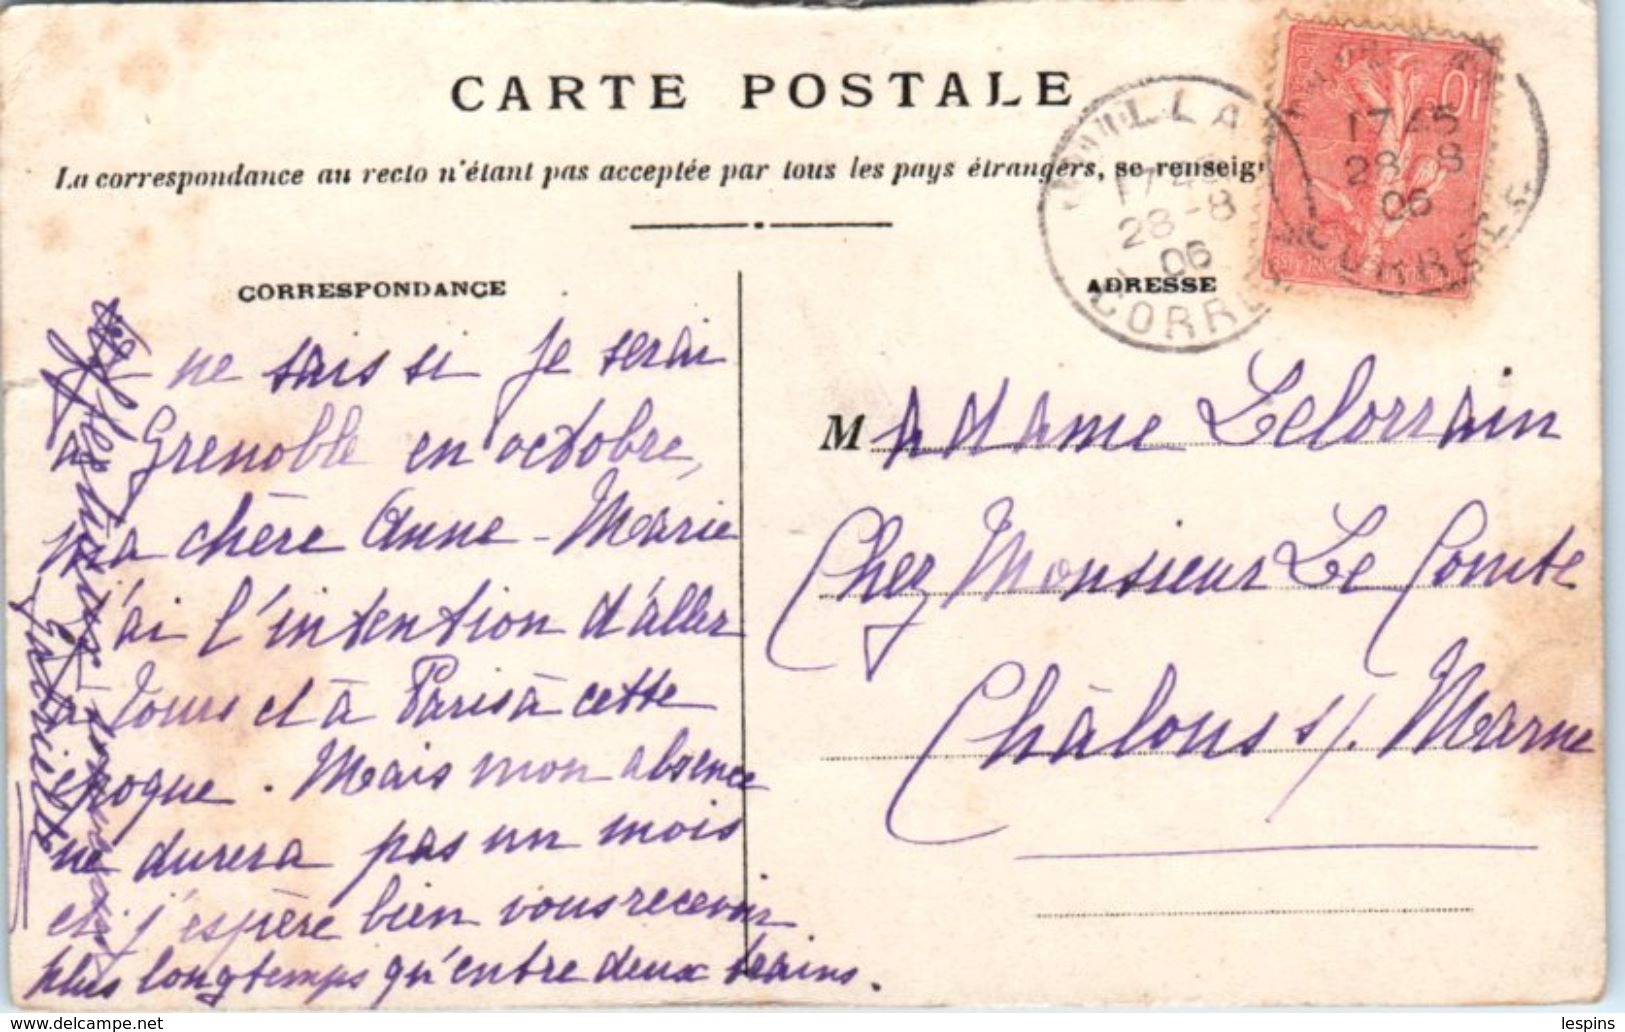 CARTE POSTALE
La correspondance au recto n'étant pas acceptée par tous les pays étrangers, se renseig
CORRESPONDANCE
Je ne sais si je serai
à Grenoble en octobre,
ma chère Anne-Marie
j'ai l'intention d'aller
à Tours et à Paris à cette
époque. Mais mon absence
ne durera pas un mois
et j'espère bien vous recevoir
plus longtemps qu'entre deux trains.
Gabrielle
ADRESSE
Madame Lelorrain
Chez Monsieur Le Comte
Châlons s/. Marne
10
17 45
28 - 8
06
CORRÈZE
17 45
28 - 8
06
CORRÈZE
lespins